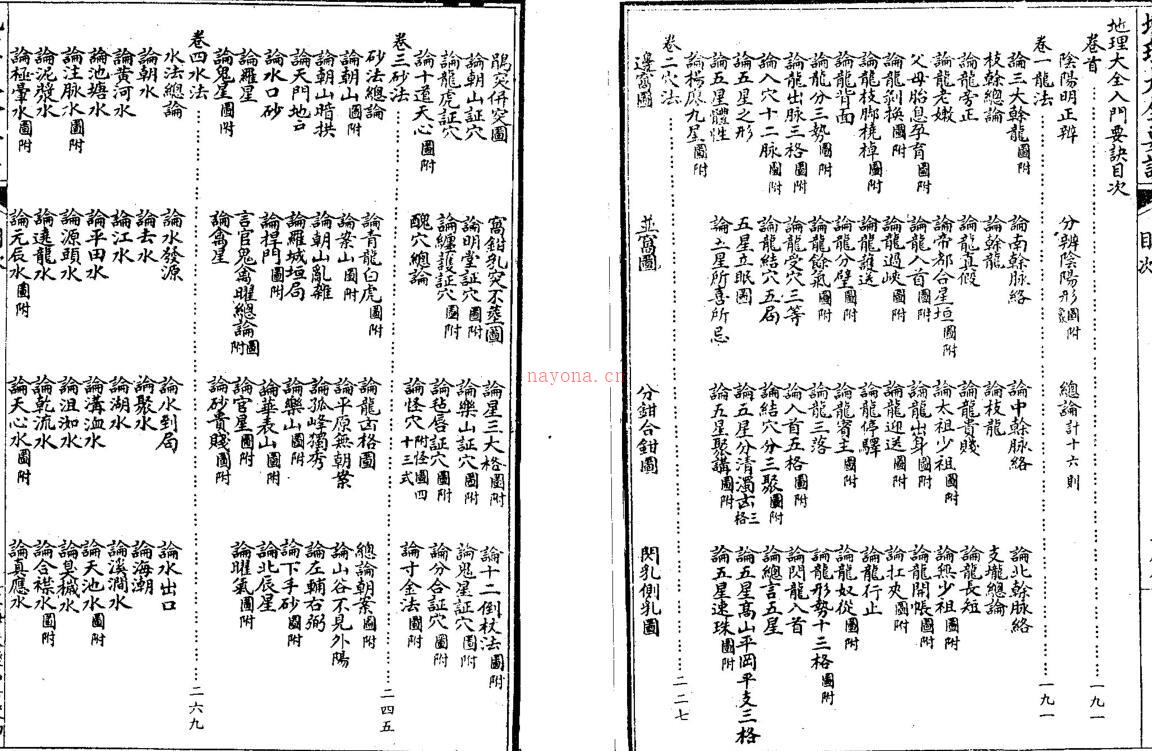 地理大全入門要訣目次
卷首 一九一
陰陽明正辨 分辨陰陽形圖附 總論計十六則
卷一龍法 一九一
論三大幹龍圖附 論南幹脉絡 論中幹脉絡 論北幹脉絡
枝幹總論 論幹龍 論枝龍 支壠總論
論龍旁正 論龍真假 論龍貴賤 論龍長短
論龍老嫩 論帝都合星垣圖附 論太祖少祖圖附 論無少祖圖附
父母胎息孕育圖附 論龍入首圖附 論龍出身圖附 論龍開帳圖附
論龍剝換圖附 論龍過峽圖附 論龍迎送圖附 論扛夾圖附
論龍枝脚橈棹圖附 論龍護送 論龍停驛 論龍行止
論龍背面 論龍分壁圖附 論龍賓主圖附 論龍奴從圖附
論龍分三勢圖附 論龍餘氣圖附 論龍三落 論龍形勢十三格圖附
論龍出脉三格圖附 論龍受穴三等 論入首五格圖附 論閃龍入首
論入穴十二脉圖附 論龍結穴五局 論結穴分三聚圖附 論總言五星
論五星之形 五星五眠圖 論五星分清濁吉三格 論五星高山平岡平支三格
論五星體性 論五星所喜所忌 論五星聚講圖附 論五星連珠圖附
論楊廖九星圖附
卷二穴法 二二七
邊窩圖 並窩圖 分鉗合鉗圖 閃乳側乳圖
鶻突併突圖 窩鉗乳突不葬圖 論星三大格圖附 論十二倒杖法圖附
論朝山証穴 論明堂証穴圖附 論樂山証穴圖附 論鬼星証穴圖附
論龍虎証穴 論纏護証穴圖附 論毡唇証穴圖附 論分合証穴圖附
論十道天心圖附 醜穴總論 論怪穴附怪圖四十三式 論寸金法圖附
卷三砂法 二四五
砂法總論 論青龍白虎圖附 論龍吉格圖 總論朝案圖附
論朝山圖附 論案山圖附 論平原無朝案 論山谷不見外陽
論朝山暗拱 論朝山亂雜 論孤峰獨秀 論左輔右弼
論天門地戸 論羅城垣局 論樂山圖附 論下手砂圖附
論水口砂 論捍門圖附 論華表山圖附 論北辰星
論羅星 言官鬼禽曜總論圖附 論官星圖附 論曜氣圖附
論鬼星圖附 論禽星 論砂貴賤圖附
卷四水法 二六九
水法總論 論水發源 論水到局 論水出口
論朝水 論去水 論聚水 論海潮
論黃河水 論江水 論湖水 論溪澗水
論池塘水 論平田水 論溝洫水 論天池水圖附
論注脉水圖附 論源頭水 論沮洳水 論臭穢水
論泥漿水 論遠龍水 論乾流水 論合襟水圖附
論極暈水圖附 論元辰水圖附 論天心水圖附 論真應水
nayona.cn